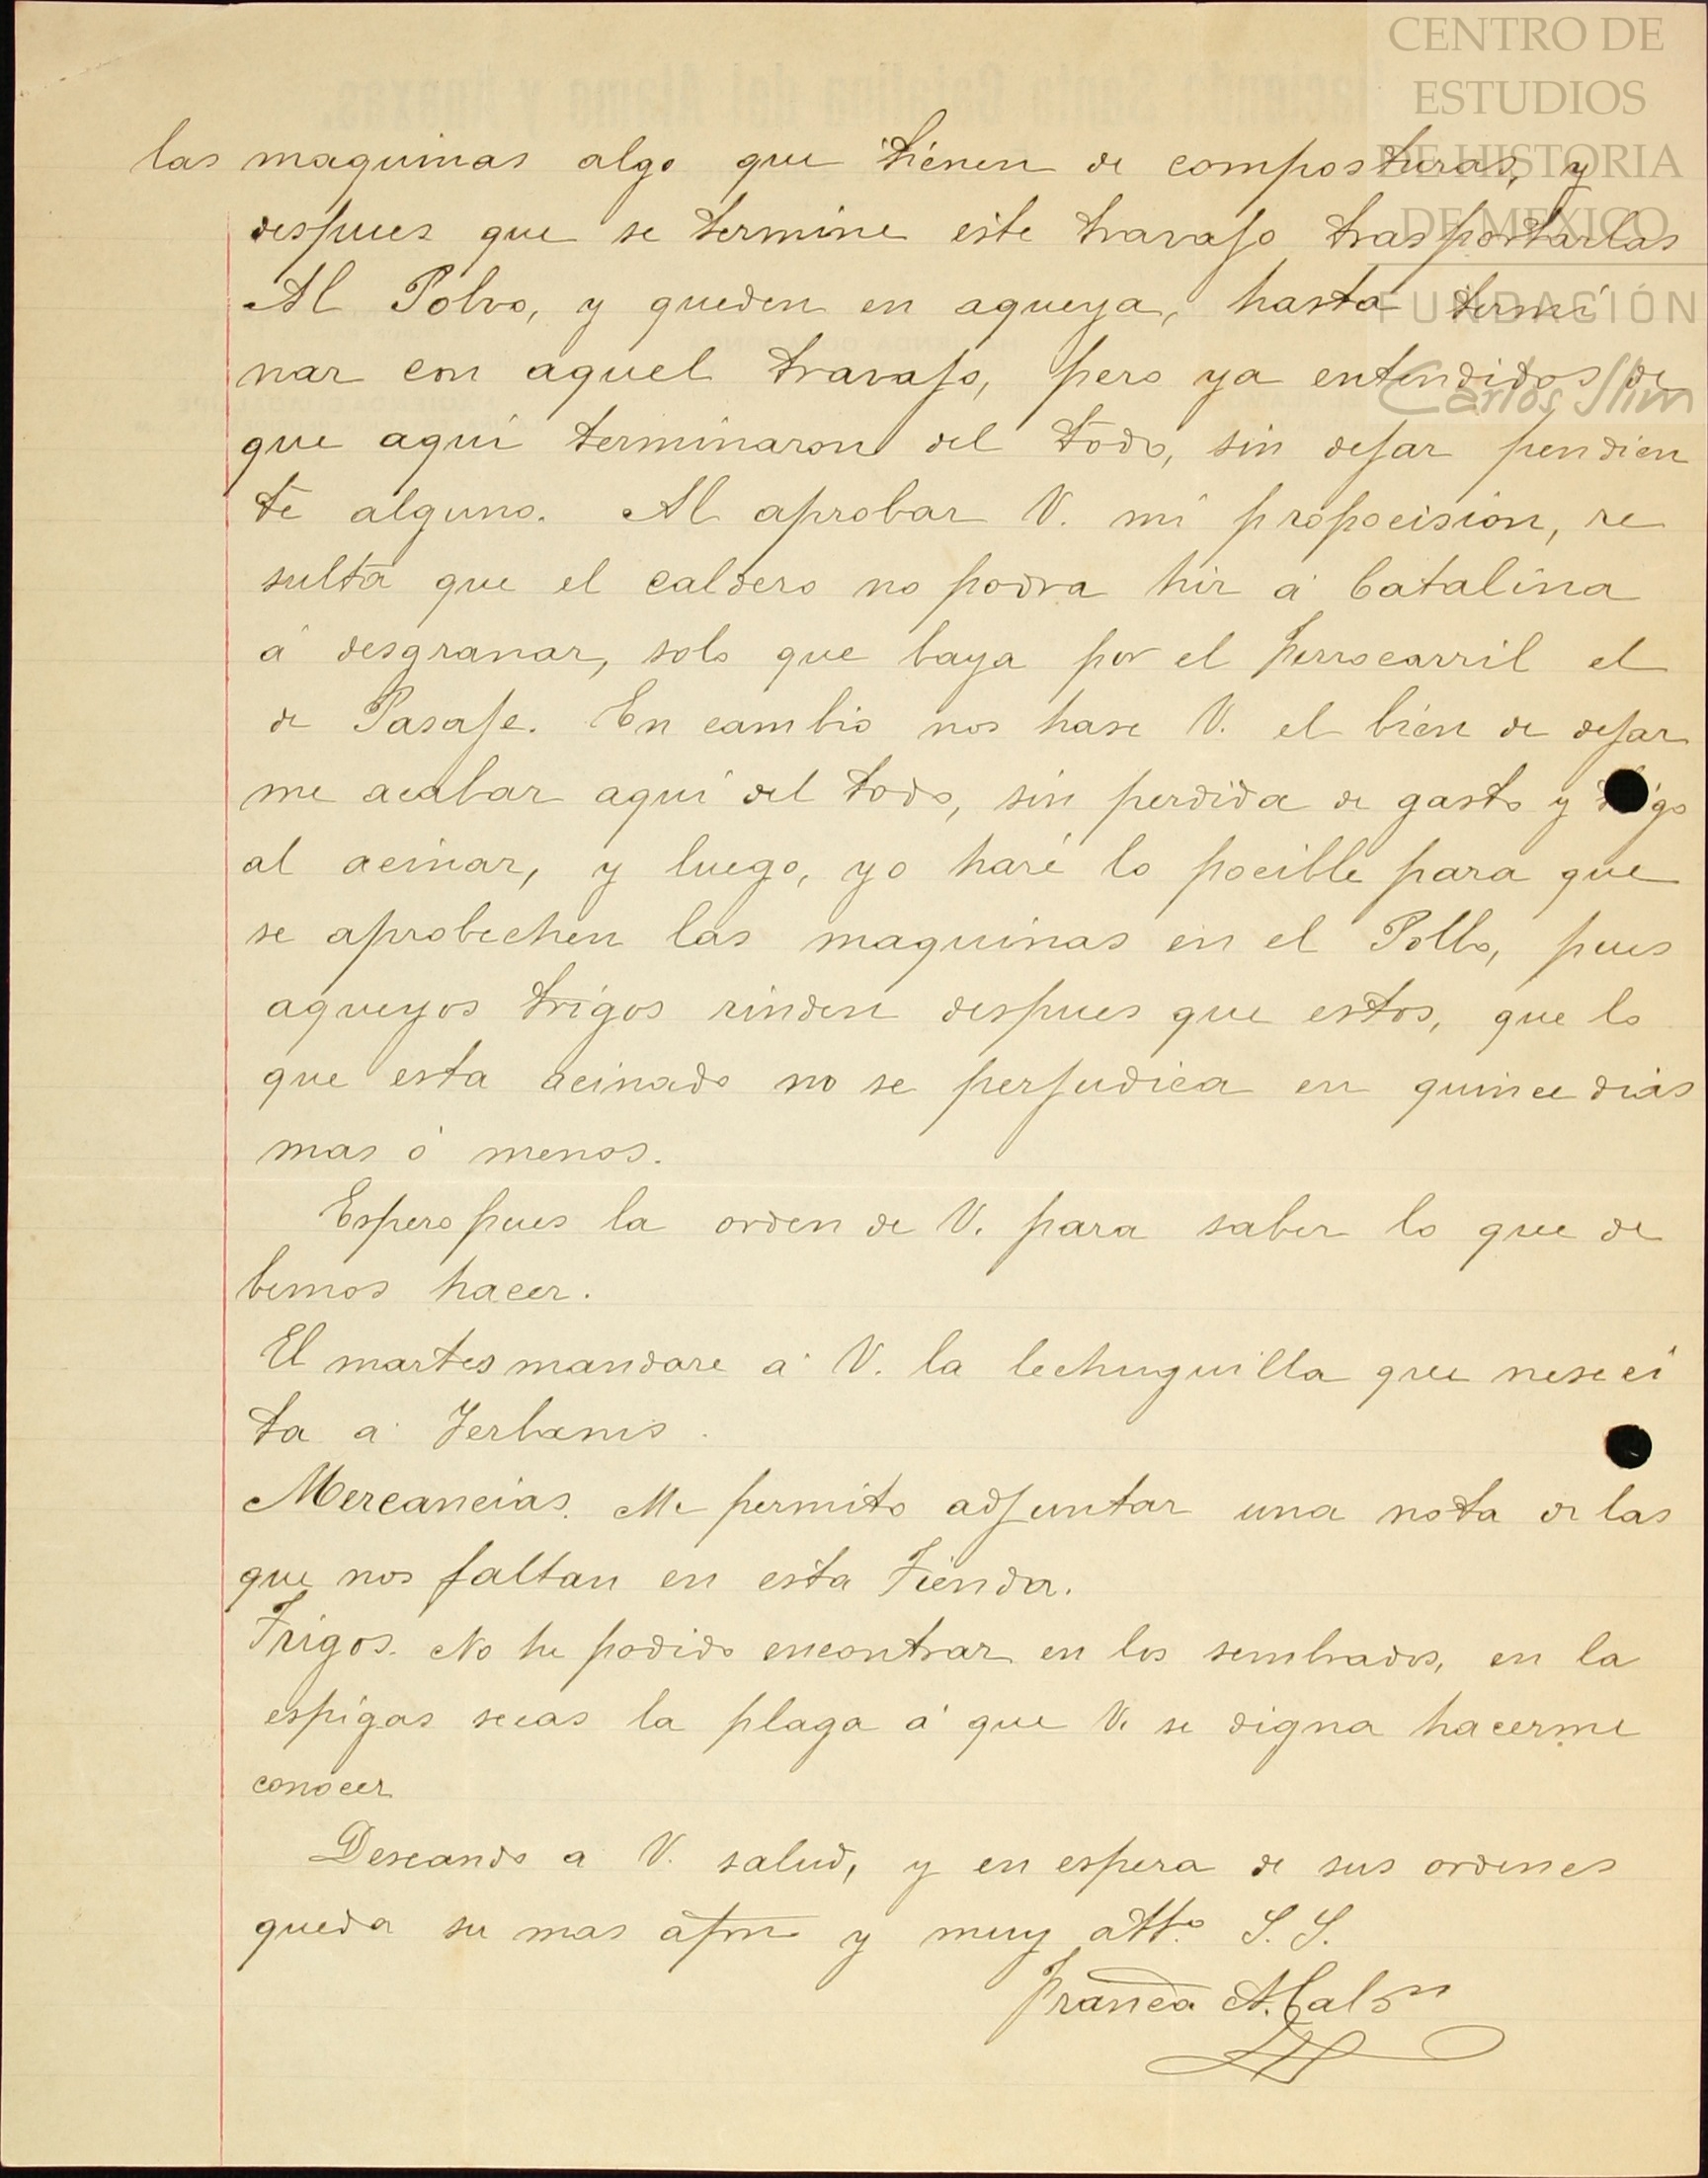 CENTRO DE
ESTUDIOS
DE HISTORIA
DE MEXICO
FUNDACIÓN
Carlos Slim
las maquinas algo que tiénen de composturas, y
despues que se termine este travajo trasportarlas
Al Polvo, y queden en aqueya, hasta termi
nar con aquel travajo, pero ya entendidos de
que aquí terminaron del todo, sin dejar pendien
te alguno. Al aprobar V. mi propocision, re
sulta que el caldero no podra hir á Catalina
á desgranar, solo que baya por el ferrocarril el
de Pasaje. En cambio nos hase V. el bien de dejar
me acabar aquí del todo, sin perdida de gasto y trigo
al acinar, y luego, yo haré lo pocible para que
se aprobechen las maquinas en el Polbo, pues
aqueyos trigos rinden despues que estos, que lo
que esta acinado no se perjudica en quince dias
mas ó menos.
Espero pues la orden de V. para saber lo que de
bemos hacer.
El martes mandare á V. la lechuguilla que neseci
ta á Yerbanis.
Mercancias. Me permito adjuntar una nota de las
que nos faltan en esta Tienda.
Trigos. No he podido encontrar en los sembrados, en la
espigas secas la plaga á que V. se digna hacerme
conocer
Deseando a V. salud, y en espera de sus ordenes
queda su mas afmo y muy atto. S. S.